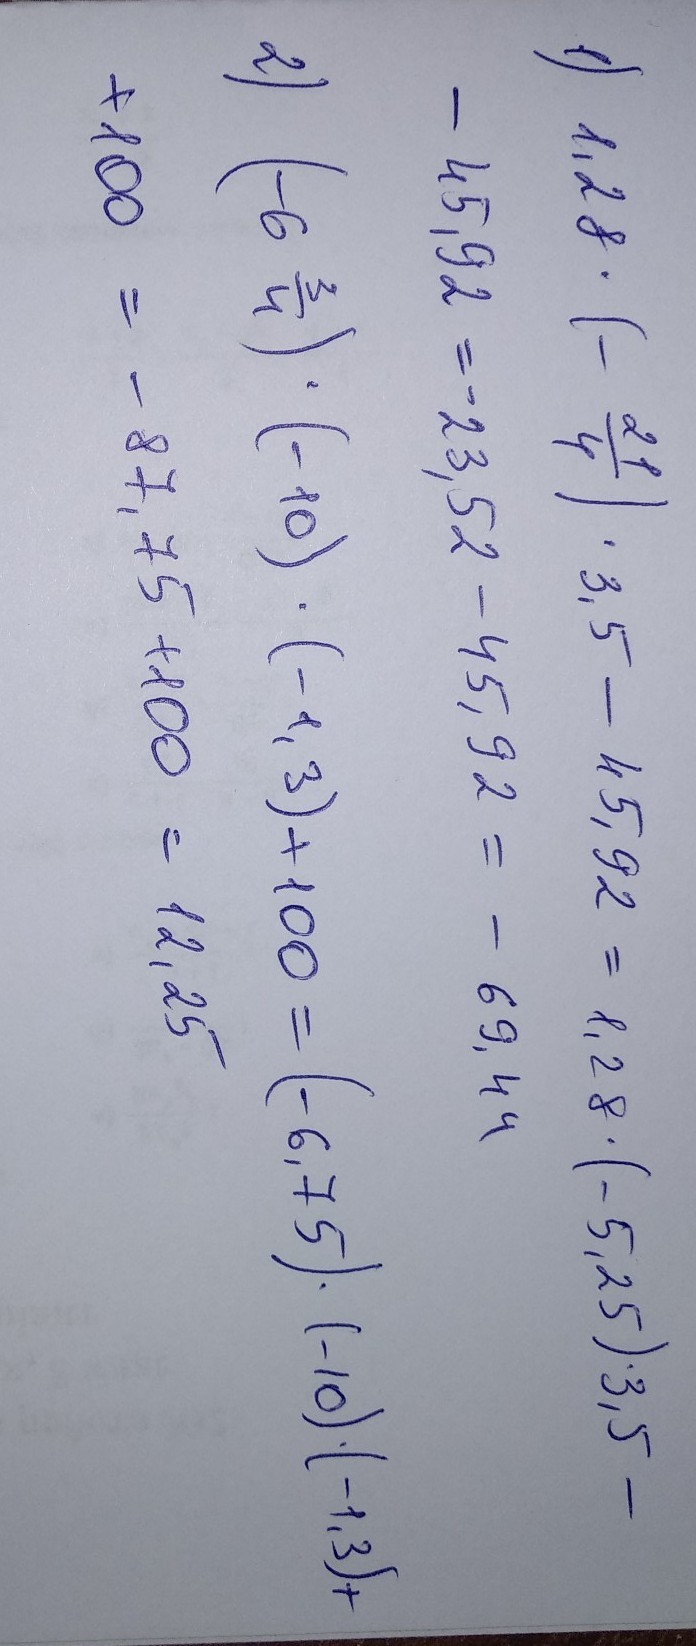 1) 1,28 · (- 21/4) · 3,5 - 45,92 = 1,28 · (-5,25) · 3,5 -
- 45,92 = -23,52 - 45,92 = - 69,44
2) (-6 3/4) · (-10) · (-1,3) + 100 = (-6,75) · (-10) · (-1,3) +
+100 = - 87,75 + 100 = 12,25